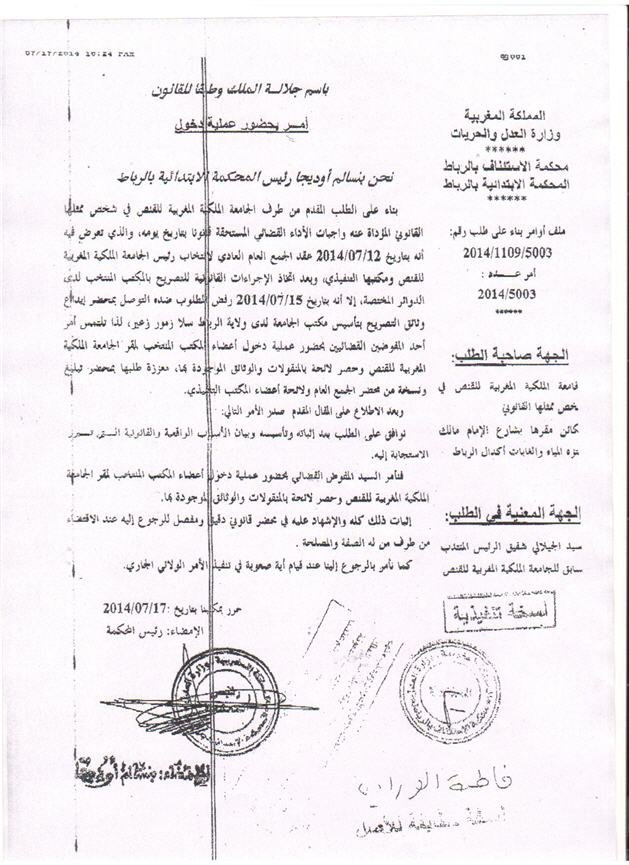 07/17/2014 10:24 FAX
001
باسم جلالة الملك وطبقا للقانون
أمر بحضور عملية دخول
نحن بنسالم أوديجا رئيس المحكمة الابتدائية بالرباط
بناء على الطلب المقدم من طرف الجامعة الملكية المغربية للقنص في شخص ممثلها
القانوني المؤداة عنه واجبات الأداء القضائي المستحقة قانونا بتاريخ يومه، والذي تعرض فيه
أنه بتاريخ 2014/07/12 عقد الجمع العام العادي لانتخاب رئيس الجامعة الملكية المغربية
للقنص ومكتبها التنفيذي، وبعد اتخاذ الإجراءات القانونية للتصريح بالمكتب المنتخب لدى
الدوائر المختصة، إلا أنه بتاريخ 2014/07/15 رفض المطلوب ضده التوصل بمحضر إيداع
وثائق التصريح بتأسيس مكتب الجامعة لدى ولاية الرباط سلا زمور زعير، لذا تلتمس أمر
أحد المفوضين القضائيين بحضور عملية دخول أعضاء المكتب المنتخب لمقر الجامعة الملكية
المغربية للقنص وحصر لائحة بالمنقولات والوثائق الموجودة بها، معززة طلبها بمحضر تبليغ
ونسخة من محضر الجمع العام ولائحة أعضاء المكتب التنفيذي.
وبعد الاطلاع على المقال المقدم صدر الأمر التالي:
نوافق على الطلب بعد إثباته وتأسيسه وبيان الأسباب الواقعية والقانونية التي تبرر
الاستجابة إليه.
فنأمر السيد المفوض القضائي بحضور عملية دخول أعضاء المكتب المنتخب لمقر الجامعة
الملكية المغربية للقنص وحصر لائحة بالمنقولات والوثائق الموجودة بها.
إثبات ذلك كله والإشهاد عليه في محضر قانوني دقيق ومفصل للرجوع إليه عند الاقتضاء
من طرف من له الصفة والمصلحة.
كما نأمر بالرجوع إلينا عند قيام أية صعوبة في تنفيذ الأمر الولائي الجاري.
حرر بمكتبنا بتاريخ: 2014/07/17
الإمضاء: رئيس المحكمة
الإمضاء: بنسالم أوديجا
المملكة المغربية
وزارة العدل والحريات
******
محكمة الاستئناف بالرباط
المحكمة الابتدائية بالرباط
******
ملف أوامر بناء على طلب رقم:
2014/1109/5003
أمر عدد:
2014/5003
******
الجهة صاحبة الطلب:
امعة الملكية المغربية للقنص في
خص ممثلها القانوني
كائن مقرها بشارع الإمام مالك
تزه المياه والغابات أكدال الرباط
الجهة المعنية في الطلب:
سيد الجيلالي شفيق الرئيس المنتدب
سابق للجامعة الملكية المغربية للقنص
نسخة تنفيذية
فاطمة الورادي